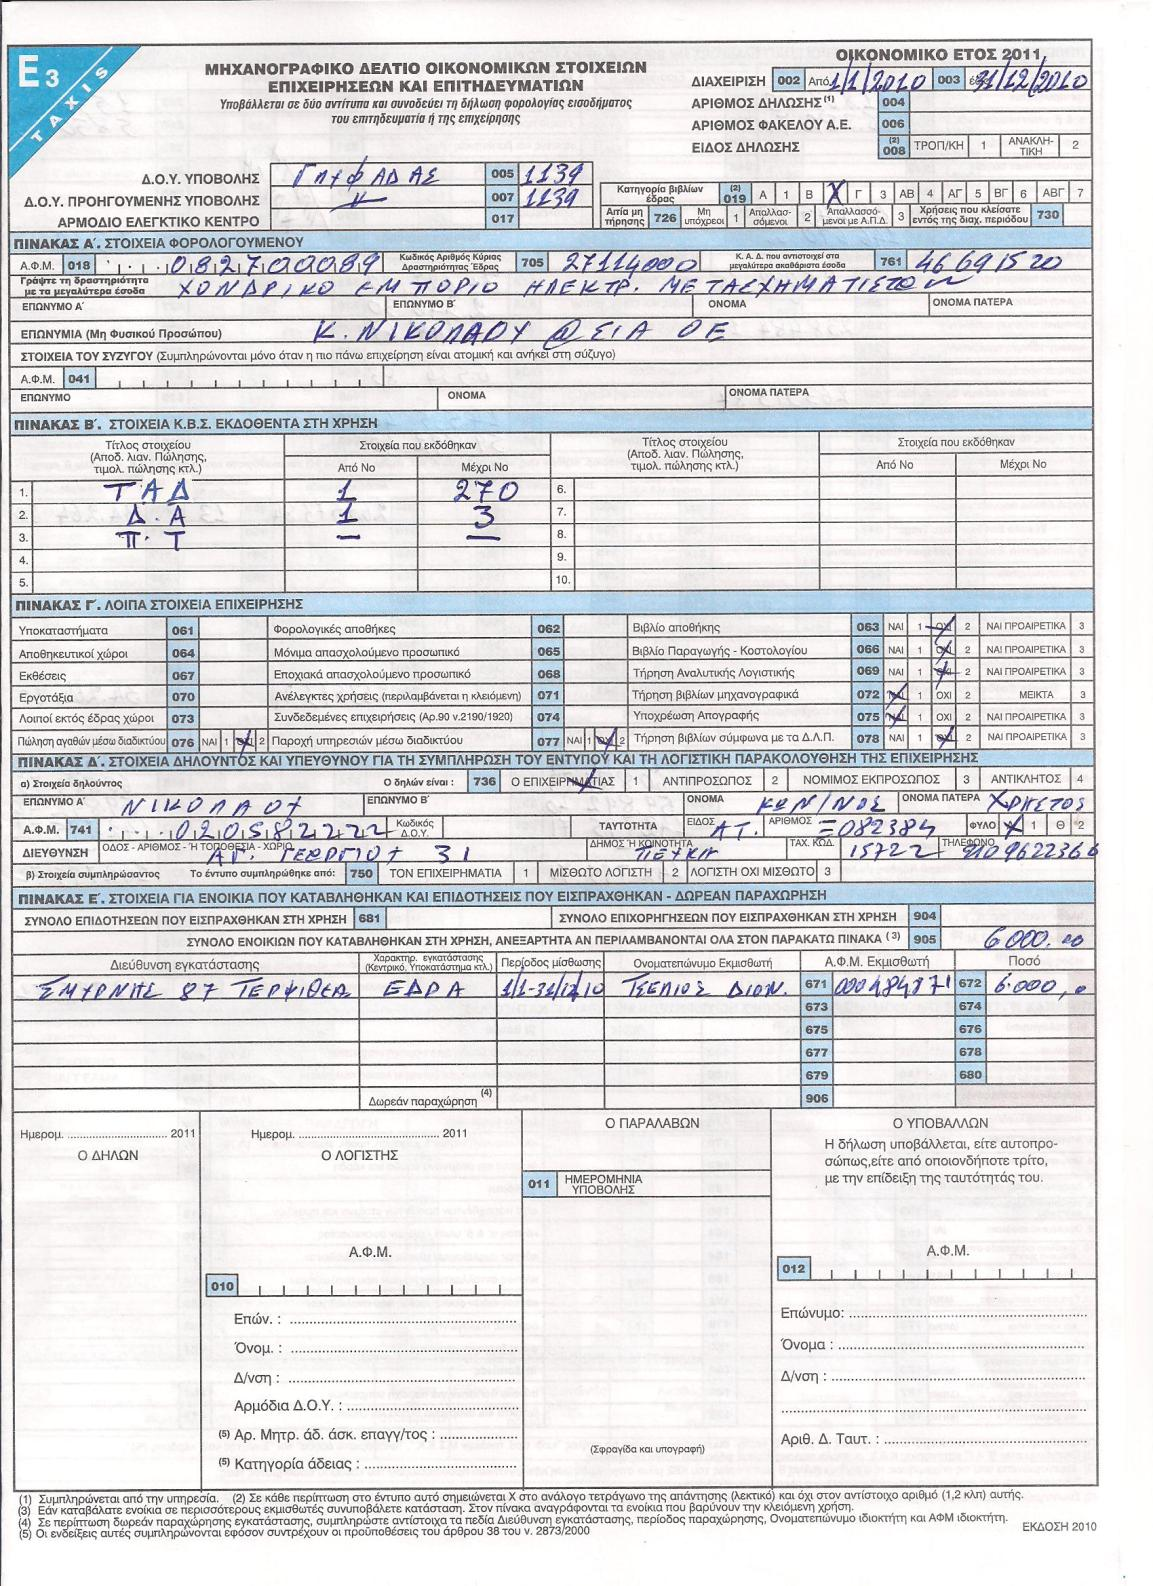 E3
TAXIS
ΜΗΧΑΝΟΓΡΑΦΙΚΟ ΔΕΛΤΙΟ ΟΙΚΟΝΟΜΙΚΩΝ ΣΤΟΙΧΕΙΩΝ
ΕΠΙΧΕΙΡΗΣΕΩΝ ΚΑΙ ΕΠΙΤΗΔΕΥΜΑΤΙΩΝ
Υποβάλλεται σε δύο αντίτυπα και συνοδεύει τη δήλωση φορολογίας εισοδήματος
του επιτηδευματία ή της επιχείρησης
ΟΙΚΟΝΟΜΙΚΟ ΕΤΟΣ 2011
ΔΙΑΧΕΙΡΙΣΗ 002 Από 1/1/2010 003 έως 31/12/2010
ΑΡΙΘΜΟΣ ΔΗΛΩΣΗΣ (1) 004
ΑΡΙΘΜΟΣ ΦΑΚΕΛΟΥ Α.Ε. 006
ΕΙΔΟΣ ΔΗΛΩΣΗΣ (2) 008 ΤΡΟΠ/ΚΗ 1 ΑΝΑΚΛΗ-ΤΙΚΗ 2
Δ.Ο.Υ. ΥΠΟΒΟΛΗΣ ΓΛΥΦΑΔΑΣ 005 1139
Δ.Ο.Υ. ΠΡΟΗΓΟΥΜΕΝΗΣ ΥΠΟΒΟΛΗΣ 007 1139
ΑΡΜΟΔΙΟ ΕΛΕΓΚΤΙΚΟ ΚΕΝΤΡΟ 017
Κατηγορία βιβλίων έδρας (2) 019 Α 1 Β X Γ 3 ΑΒ 4 ΑΓ 5 ΒΓ 6 ΑΒΓ 7
Αιτία μη τήρησης 726 Μη υπόχρεοι 1 Απαλλασ-σόμενοι 2 Απαλλασσό-μενοι με Α.Π.Δ. 3 Χρήσεις που κλείσατε εντός της διαχ. περιόδου 730
ΠΙΝΑΚΑΣ Α΄. ΣΤΟΙΧΕΙΑ ΦΟΡΟΛΟΓΟΥΜΕΝΟΥ
Α.Φ.Μ. 018 082700089 Κωδικός Αριθμός Κύριας Δραστηριότητας Έδρας 705 27114000 Κ.Α.Δ. που αντιστοιχεί στα μεγαλύτερα ακαθάριστα έσοδα 761 46691520
Γράψτε τη δραστηριότητα με τα μεγαλύτερα έσοδα ΧΟΝΔΡΙΚΟ ΕΜΠΟΡΙΟ ΗΛΕΚΤΡ. ΜΕΤΑΣΧΗΜΑΤΙΣΤΩΝ
ΕΠΩΝΥΜΟ Α΄ ΕΠΩΝΥΜΟ Β΄ ΟΝΟΜΑ ΟΝΟΜΑ ΠΑΤΕΡΑ
ΕΠΩΝΥΜΙΑ (Μη Φυσικού Προσώπου) Κ. ΝΙΚΟΛΑΟΥ @ ΣΙΑ ΟΕ
ΣΤΟΙΧΕΙΑ ΤΟΥ ΣΥΖΥΓΟΥ (Συμπληρώνονται μόνο όταν η πιο πάνω επιχείρηση είναι ατομική και ανήκει στη σύζυγο)
Α.Φ.Μ. 041
ΕΠΩΝΥΜΟ ΟΝΟΜΑ ΟΝΟΜΑ ΠΑΤΕΡΑ
ΠΙΝΑΚΑΣ Β΄. ΣΤΟΙΧΕΙΑ Κ.Β.Σ. ΕΚΔΟΘΕΝΤΑ ΣΤΗ ΧΡΗΣΗ
Τίτλος στοιχείου Στοιχεία που εκδόθηκαν Τίτλος στοιχείου Στοιχεία που εκδόθηκαν
(Αποδ. λιαν. Πώλησης, (Αποδ. λιαν. Πώλησης,
τιμολ. πώλησης κτλ.) Από Νο Μέχρι Νο τιμολ. πώλησης κτλ.) Από Νο Μέχρι Νο
1. ΤΑΔ 1 270 6.
2. Δ.Α 1 3 7.
3. Π.Τ — — 8.
4. 9.
5. 10.
ΠΙΝΑΚΑΣ Γ΄. ΛΟΙΠΑ ΣΤΟΙΧΕΙΑ ΕΠΙΧΕΙΡΗΣΗΣ
Υποκαταστήματα 061 Φορολογικές αποθήκες 062 Βιβλίο αποθήκης 063 ΝΑΙ 1 ΟΧΙ 2 ΝΑΙ ΠΡΟΑΙΡΕΤΙΚΑ 3
Αποθηκευτικοί χώροι 064 Μόνιμα απασχολούμενο προσωπικό 065 Βιβλίο Παραγωγής - Κοστολογίου 066 ΝΑΙ 1 ΟΧΙ 2 ΝΑΙ ΠΡΟΑΙΡΕΤΙΚΑ 3
Εκθέσεις 067 Εποχιακά απασχολούμενο προσωπικό 068 Τήρηση Αναλυτικής Λογιστικής 069 ΝΑΙ 1 ΟΧΙ 2 ΝΑΙ ΠΡΟΑΙΡΕΤΙΚΑ 3
Εργοτάξια 070 Ανέλεγκτες χρήσεις (περιλαμβάνεται η κλειόμενη) 071 Τήρηση βιβλίων μηχανογραφικά 072 ΝΑΙ 1 ΟΧΙ 2 ΜΕΙΚΤΑ 3
Λοιποί εκτός έδρας χώροι 073 Συνδεδεμένες επιχειρήσεις (Αρ.90 ν.2190/1920) 074 Υποχρέωση Απογραφής 075 ΝΑΙ 1 ΟΧΙ 2 ΝΑΙ ΠΡΟΑΙΡΕΤΙΚΑ 3
Πώληση αγαθών μέσω διαδικτύου 076 ΝΑΙ 1 ΟΧΙ 2 Παροχή υπηρεσιών μέσω διαδικτύου 077 ΝΑΙ 1 ΟΧΙ 2 Τήρηση βιβλίων σύμφωνα με τα Δ.Λ.Π. 078 ΝΑΙ 1 ΟΧΙ 2 ΝΑΙ ΠΡΟΑΙΡΕΤΙΚΑ 3
ΠΙΝΑΚΑΣ Δ΄. ΣΤΟΙΧΕΙΑ ΔΗΛΟΥΝΤΟΣ ΚΑΙ ΥΠΕΥΘΥΝΟΥ ΓΙΑ ΤΗ ΣΥΜΠΛΗΡΩΣΗ ΤΟΥ ΕΝΤΥΠΟΥ ΚΑΙ ΤΗ ΛΟΓΙΣΤΙΚΗ ΠΑΡΑΚΟΛΟΥΘΗΣΗ ΤΗΣ ΕΠΙΧΕΙΡΗΣΗΣ
α) Στοιχεία δηλούντος Ο δηλών είναι : 736 Ο ΕΠΙΧΕΙΡΗΜΑΤΙΑΣ 1 ΑΝΤΙΠΡΟΣΩΠΟΣ 2 ΝΟΜΙΜΟΣ ΕΚΠΡΟΣΩΠΟΣ 3 ΑΝΤΙΚΛΗΤΟΣ 4
ΕΠΩΝΥΜΟ Α΄ ΝΙΚΟΛΑΟΥ ΕΠΩΝΥΜΟ Β΄ ΟΝΟΜΑ ΚΩΝ/ΝΟΣ ΟΝΟΜΑ ΠΑΤΕΡΑ ΧΡΗΣΤΟΣ
Α.Φ.Μ. 741 020582222 Κωδικός Δ.Ο.Υ. ΤΑΥΤΟΤΗΤΑ ΕΙΔΟΣ ΑΤ. ΑΡΙΘΜΟΣ Ξ082384 ΦΥΛΟ Χ 1 Θ 2
ΔΙΕΥΘΥΝΣΗ ΟΔΟΣ - ΑΡΙΘΜΟΣ - Ή ΤΟΠΟΘΕΣΙΑ - ΧΩΡΙΟ ΑΓ. ΓΕΩΡΓΙΟΥ 31 ΔΗΜΟΣ Ή ΚΟΙΝΟΤΗΤΑ ΠΕΥΚΗ ΤΑΧ. ΚΩΔ. 15722 ΤΗΛΕΦΩΝΟ 2109622366
β) Στοιχεία συμπληρώσαντος Το έντυπο συμπληρώθηκε από: 750 ΤΟΝ ΕΠΙΧΕΙΡΗΜΑΤΙΑ 1 ΜΙΣΘΩΤΟ ΛΟΓΙΣΤΗ 2 ΛΟΓΙΣΤΗ ΟΧΙ ΜΙΣΘΩΤΟ 3
ΠΙΝΑΚΑΣ Ε΄. ΣΤΟΙΧΕΙΑ ΓΙΑ ΕΝΟΙΚΙΑ ΠΟΥ ΚΑΤΑΒΛΗΘΗΚΑΝ ΚΑΙ ΕΠΙΔΟΤΗΣΕΙΣ ΠΟΥ ΕΙΣΠΡΑΧΘΗΚΑΝ - ΔΩΡΕΑΝ ΠΑΡΑΧΩΡΗΣΗ
ΣΥΝΟΛΟ ΕΠΙΔΟΤΗΣΕΩΝ ΠΟΥ ΕΙΣΠΡΑΧΘΗΚΑΝ ΣΤΗ ΧΡΗΣΗ 681 ΣΥΝΟΛΟ ΕΠΙΧΟΡΗΓΗΣΕΩΝ ΠΟΥ ΕΙΣΠΡΑΧΘΗΚΑΝ ΣΤΗ ΧΡΗΣΗ 904
ΣΥΝΟΛΟ ΕΝΟΙΚΙΩΝ ΠΟΥ ΚΑΤΑΒΛΗΘΗΚΑΝ ΣΤΗ ΧΡΗΣΗ, ΑΝΕΞΑΡΤΗΤΑ ΑΝ ΠΕΡΙΛΑΜΒΑΝΟΝΤΑΙ ΟΛΑ ΣΤΟΝ ΠΑΡΑΚΑΤΩ ΠΙΝΑΚΑ (3) 905 6000.00
Διεύθυνση εγκατάστασης Χαρακτηρ. εγκατάστασης (Κεντρικό, Υποκατάστημα κτλ.) Περίοδος μίσθωσης Ονοματεπώνυμο Εκμισθωτή Α.Φ.Μ. Εκμισθωτή Ποσό
ΣΜΥΡΝΗΣ 87 ΤΕΡΨΙΘΕΑ ΕΔΡΑ 1/1-31/12/10 ΤΣΕΛΙΟΣ ΔΙΟΝ. 671 000484871 672 6.000,0
673 674
675 676
677 678
679 680
Δωρεάν παραχώρηση (4) 906
Ημερομ. 2011
Ο ΔΗΛΩΝ
Ημερομ. 2011
Ο ΛΟΓΙΣΤΗΣ
Α.Φ.Μ.
010
Επών. :
Όνομ. :
Δ/νση :
Αρμόδια Δ.Ο.Υ. :
(5) Αρ. Μητρ. άδ. άσκ. επαγγ/τος :
(5) Κατηγορία άδειας :
Ο ΠΑΡΑΛΑΒΩΝ
011 ΗΜΕΡΟΜΗΝΙΑ ΥΠΟΒΟΛΗΣ
(Σφραγίδα και υπογραφή)
Ο ΥΠΟΒΑΛΛΩΝ
Η δήλωση υποβάλλεται, είτε αυτοπρο-
σώπως,είτε από οποιονδήποτε τρίτο,
με την επίδειξη της ταυτότητάς του.
Α.Φ.Μ.
012
Επώνυμο:
Όνομα :
Δ/νση :
Αριθ. Δ. Ταυτ. :
(1) Συμπληρώνεται από την υπηρεσία. (2) Σε κάθε περίπτωση στο έντυπο αυτό σημειώνεται Χ στο ανάλογο τετράγωνο της απάντησης (λεκτικό) και όχι στον αντίστοιχο αριθμό (1,2 κλπ) αυτής.
(3) Εάν καταβάλατε ενοίκια σε περισσότερους εκμισθωτές συνυποβάλετε κατάσταση. Στον πίνακα αναγράφονται τα ενοίκια που βαρύνουν την κλειόμενη χρήση.
(4) Σε περίπτωση δωρεάν παραχώρησης εγκατάστασης, συμπληρώστε αντίστοιχα τα πεδία Διεύθυνση εγκατάστασης, περίοδος παραχώρησης, Ονοματεπώνυμο ιδιοκτήτη και ΑΦΜ ιδιοκτήτη.
(5) Οι ενδείξεις αυτές συμπληρώνονται εφόσον συντρέχουν οι προϋποθέσεις του άρθρου 38 του ν. 2873/2000
ΕΚΔΟΣΗ 2010